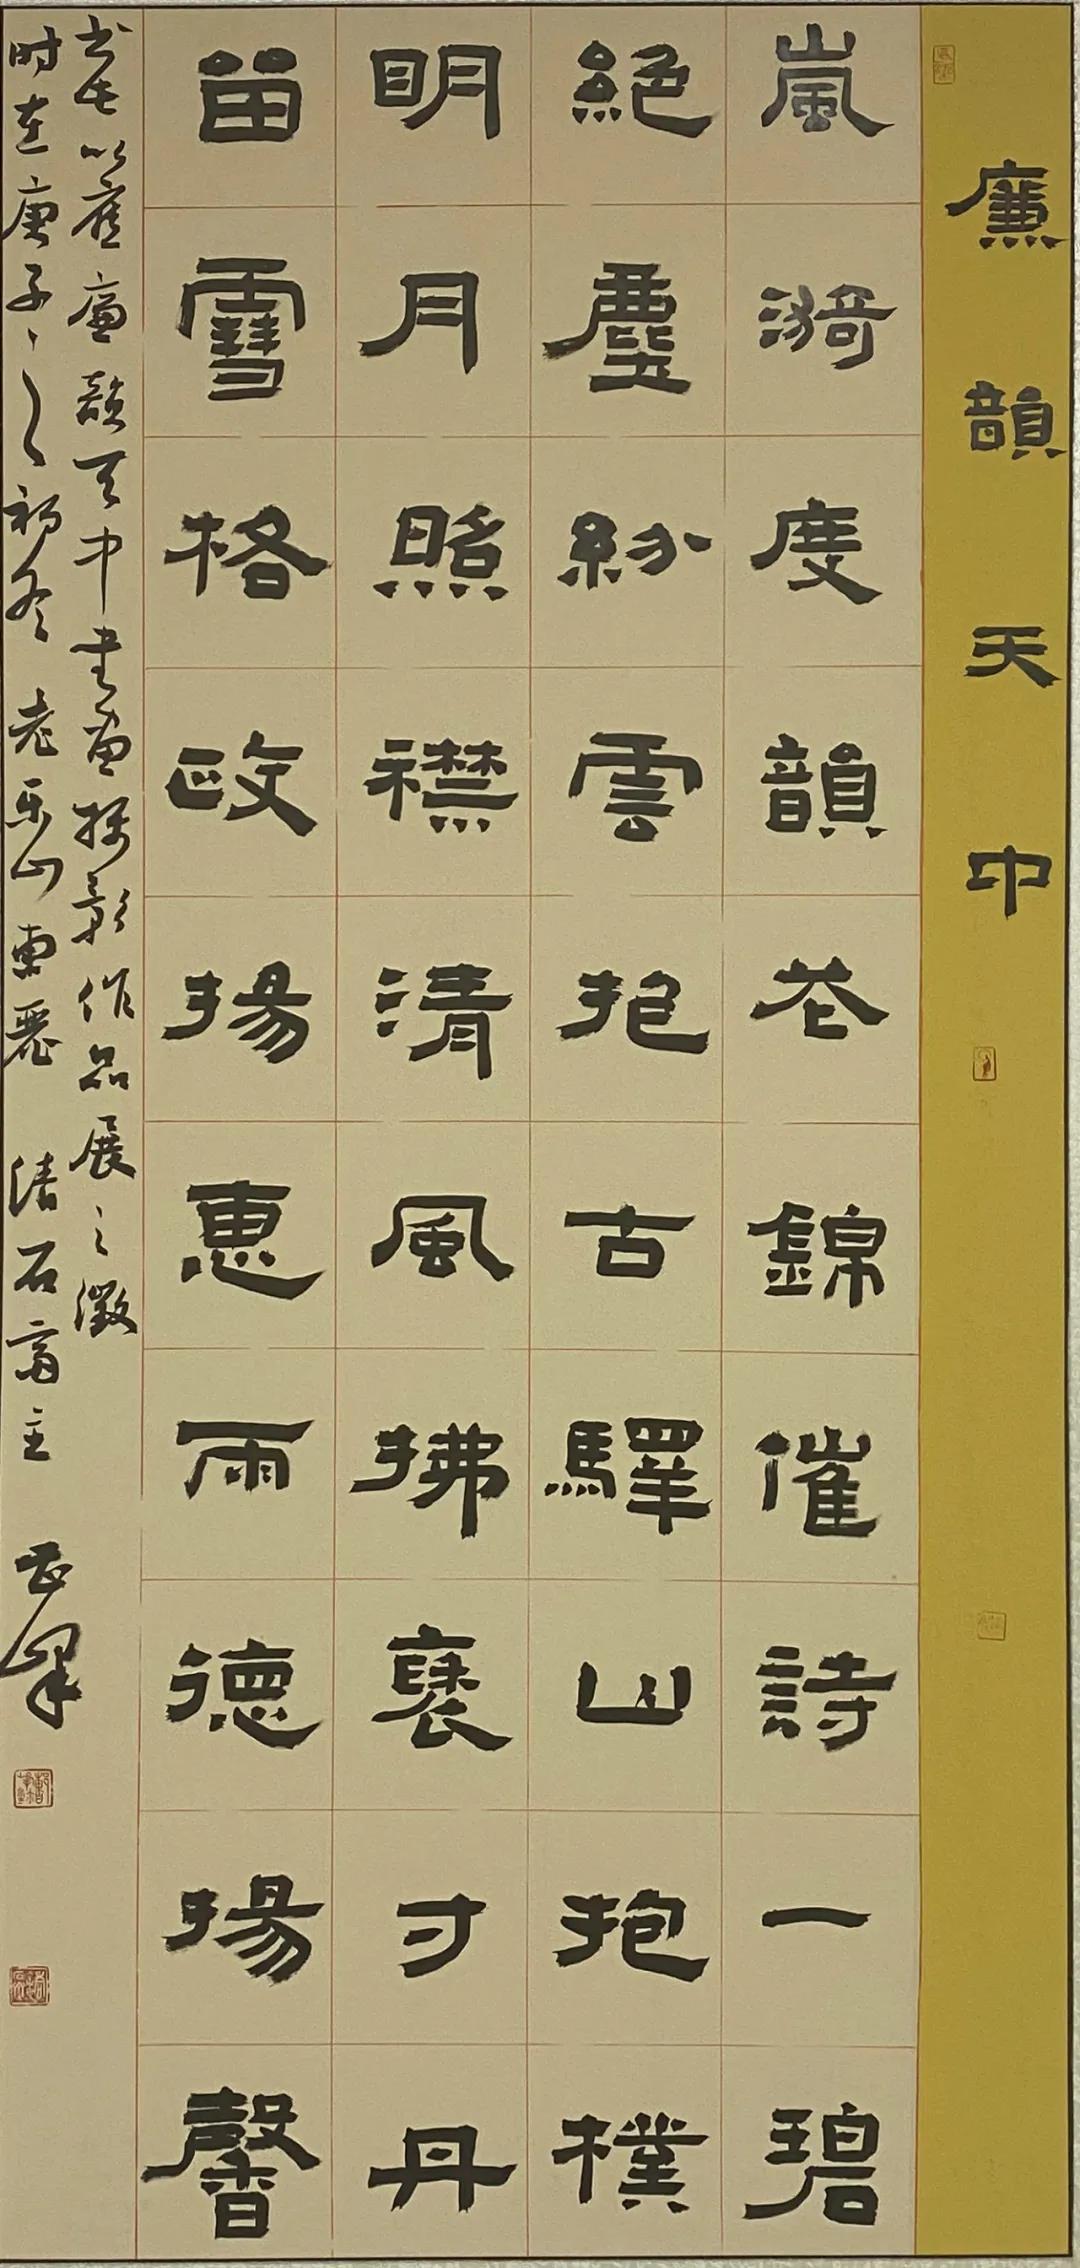 廉韻天中
嵐漪度韻花錦催詩一碧
絕塵紛雲抱古驛山抱樸
明月照襟清風拂褎寸丹
留雪格政揚惠雨德揚馨
书此以應廉韻天中書畫攝影作品展之徵
时在庚子之初冬老乐山東麓清石齋主